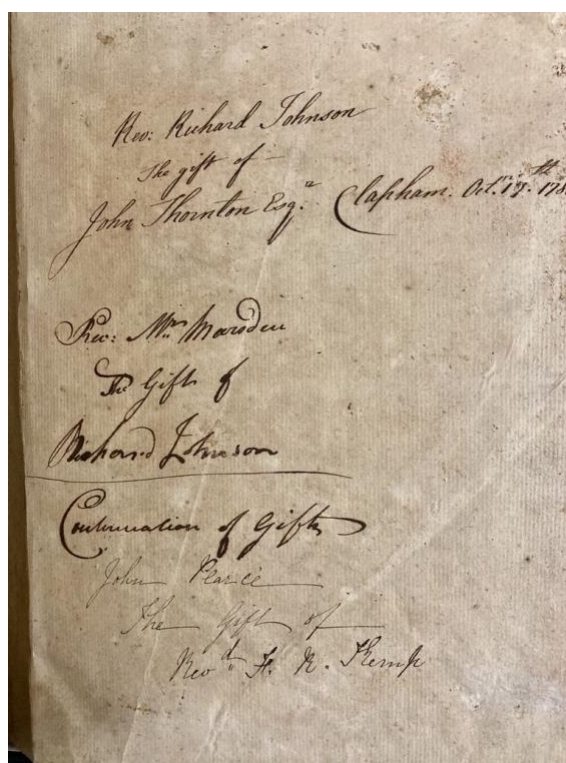 Rev: Richard Johnson
The gift of
John Thornton Esqr. Clapham. Octr. 17th 178
Rev: Mr Marsden
The Gift of
Richard Johnson
Continuation of Gifts
John Pearce
The Gift of
Revd F. R. Kemp